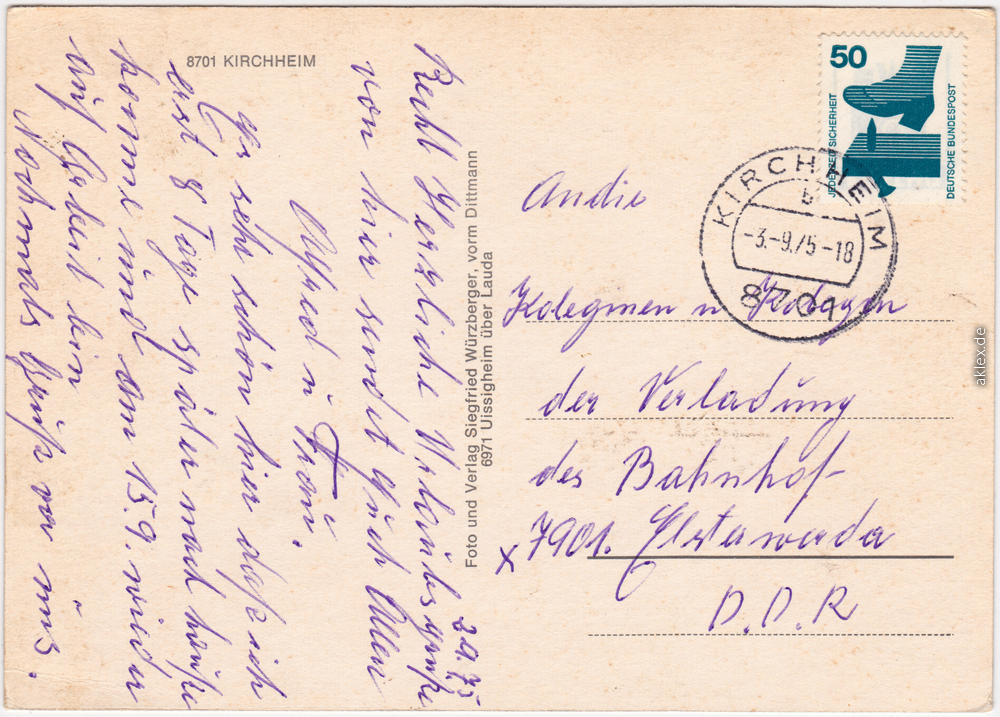 8701 KIRCHHEIM
2.9.75
Recht Herzliche Urlaubsgrüße
von hier sendet Euch Allen
Alfred u Frau.
Es ist sehr schön hier daß ich
erst 8 Tage später nach hause
komme und am 15.9. wieder
auf Arbeit bin
Nochmals Gruß von uns.
Foto und Verlag Siegfried Würzberger, vorm Dittmann
6971 Uissigheim über Lauda
50
JEDERZEIT SICHERHEIT
DEUTSCHE BUNDESPOST
KIRCHHEIM
b
-3.-9.75-18
8701
An die
Kolleginnen u Kollegen
der Verladung
des Bahnhof
x 7901. Elsterwerda
D.D.R
aklex.de